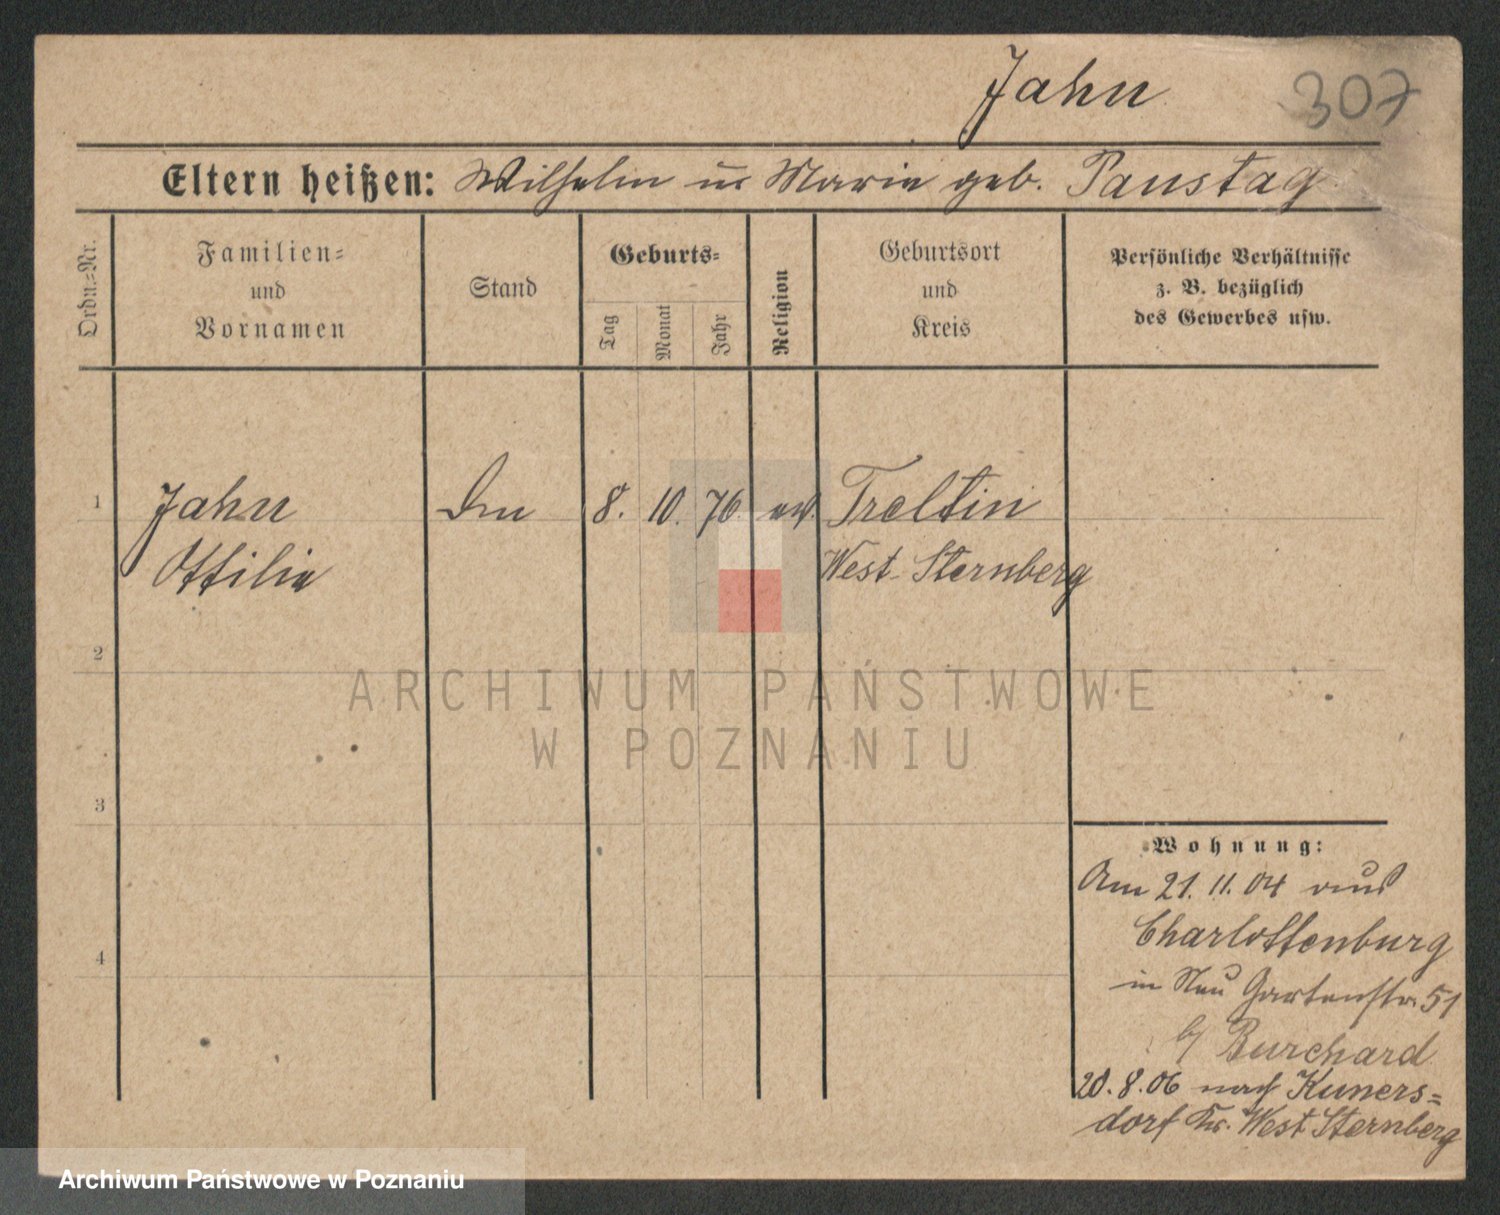 Jahn
307
Eltern heißen: Wilhelm u Marie geb. Paustag
Ordn.-Nr.
Familien-
und
Vornamen
Stand
Geburts-
Tag
Monat
Jahr
Religion
Geburtsort
und
Kreis
Persönliche Verhältnisse
z. B. bezüglich
des Gewerbes usw.
1 Jahn 8. 10. 76 ev. Treltin
Ottilie West-Sternberg
2
ARCHIWUM PAŃSTWOWE
W POZNANIU
3
Wohnung:
Am 21. 11. 04 aus
Charlottenburg
in Neu Gartenstr. 51
b/ Burchard
20. 8. 06 nach Kuners=
dorf Kr. West Sternberg
4
Archiwum Państwowe w Poznaniu